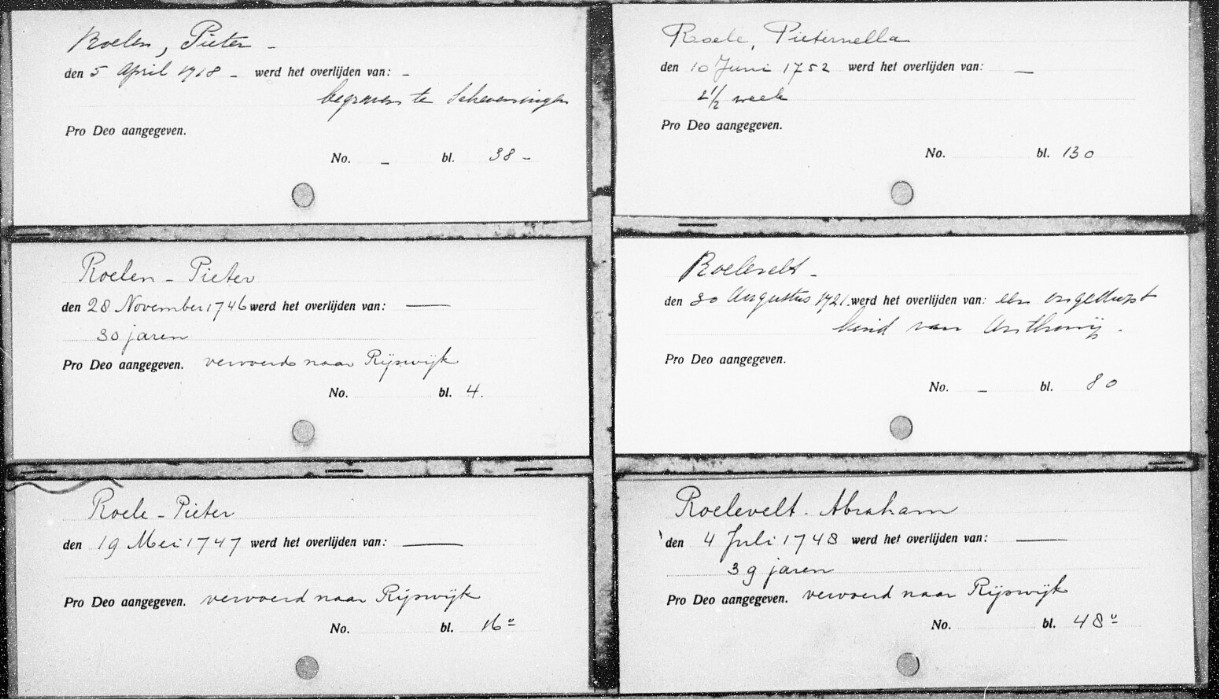 Roelen, Pieter -
den 5 April 1718 - werd het overlijden van: -
begraven te Scheveningen
Pro Deo aangegeven.
No. - bl. 38 -
Roelen - Pieter
den 28 November 1746 werd het overlijden van: —
30 jaren
Pro Deo aangegeven. vervoerd naar Rijswijk
No. bl. 4.
Roele - Pieter
den 19 Mei 1747 werd het overlijden van: —
Pro Deo aangegeven. vervoerd naar Rijswijk
No. bl. 16v
Roele, Pieternella
den 10 Juni 1752 werd het overlijden van: —
2 1/2 week
Pro Deo aangegeven.
No. bl. 130
Roelevelt -
den 30 Augustus 1721 werd het overlijden van: een ongedoopt
kind van Anthonij.
Pro Deo aangegeven.
No. - bl. 80
Roelevelt - Abraham
den 4 Juli 1748 werd het overlijden van: —
39 jaren
Pro Deo aangegeven. vervoerd naar Rijswijk
No. bl. 48v